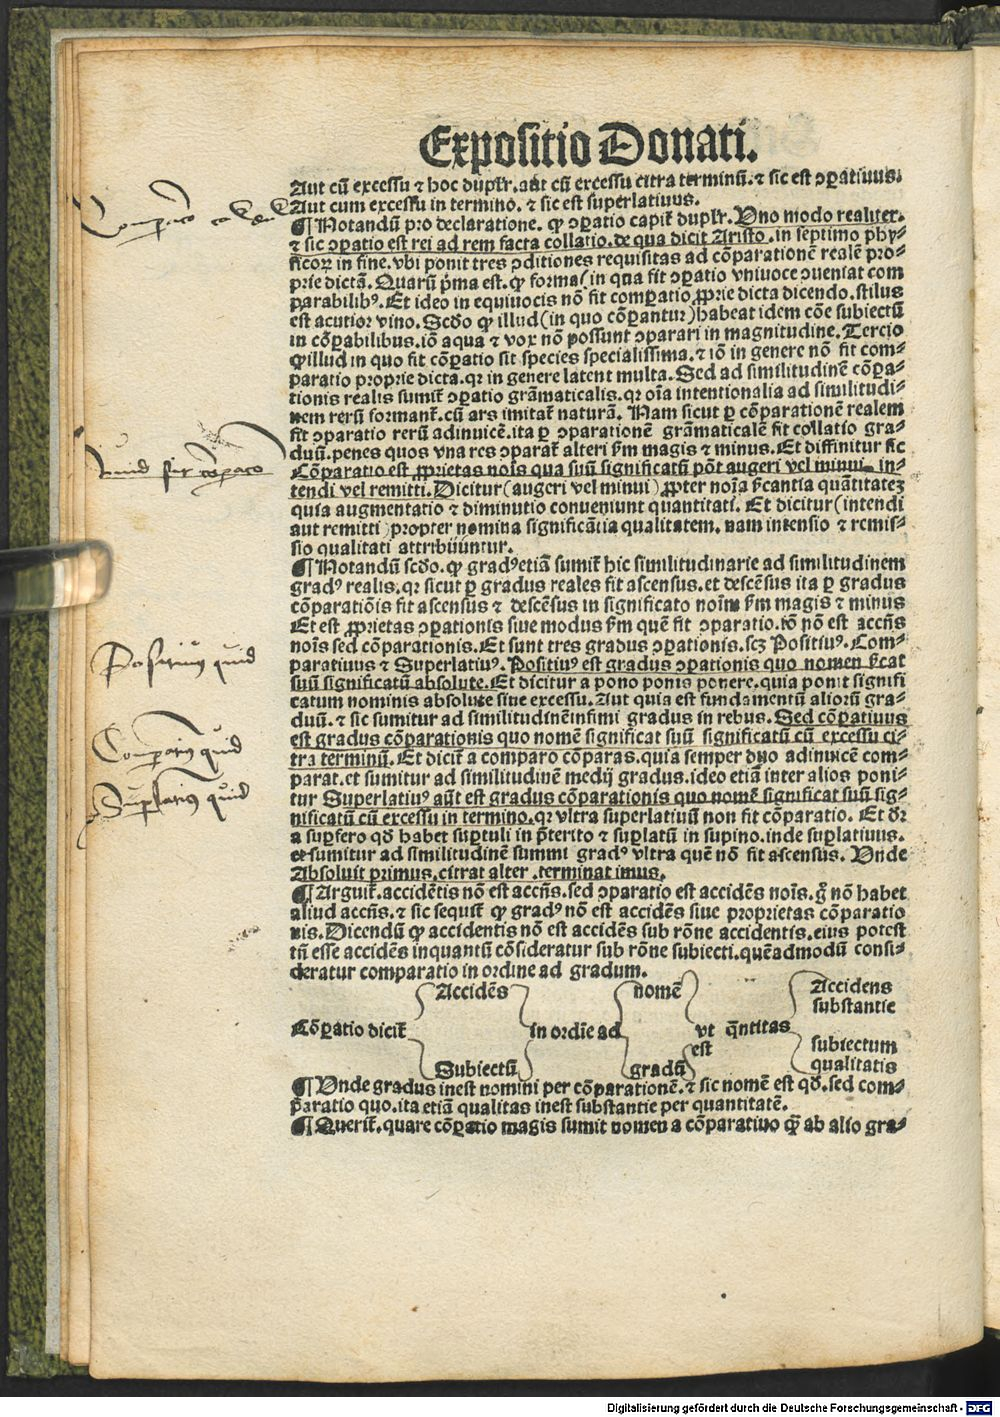 Expositio Donati.
Aut cū excessu ⁊ hoc duplr̄. aut cū excessu citra terminū. ⁊ sic est ꝯꝑatiuus.
Aut cum excessu in termino. ⁊ sic est superlatiuus.
¶ Notandū pro declaratione. ꝙ ꝯꝑatio capit᷑ duplr̄. Uno modo realiter.
⁊ sic ꝯꝑatio est rei ad rem facta collatio. de qua dicit Aristo. in septimo phy⸗
sicoꝝ in fine. vbi ponit tres ꝯditiones requisitas ad cōparationem realē pro⸗
prie dictā. Quarū p̄ma est. ꝙ forma (in qua fit ꝯꝑatio vniuoce ꝯueniat com
parabilibꝰ. Et ideo in equiuocis nō fit comꝑatio ꝓprie dicta dicendo. stilus
est acutior vino. Scd̄o ꝙ illud (in quo cōꝑantur) habeat idem cōe subiectū
in cōꝑabilibus. iō aqua ⁊ vox nō possunt ꝯparari in magnitudine. Tercio
ꝙ illud in quo fit cōꝑatio sit species specialissima. ⁊ iō in genere nō fit com⸗
paratio proprie dicta. qꝛ in genere latent multa. Sed ad similitudinē cōꝑa⸗
tionis realis sumit᷑ ꝯꝑatio grāmaticalis. qꝛ oīa intentionalia ad similitudi⸗
nem rerū formant᷑. cū ars imitat᷑ naturā. Nam sicut ꝑ cōparationē realem
fit ꝯparatio rerū adinuicē. ita ꝑ ꝯparationē grāmaticalē fit collatio gra⸗
duū. penes quos vna res ꝯparat᷑ alteri ẜm magis ⁊ minus. Et diffinitur sic
Cōparatio est ꝓprietas nois̄ qua suū significatū pōt augeri vel minui. in⸗
tendi vel remitti. Dicitur (augeri vel minui) ꝓpter noīa ẜcantia quātitateꝫ
quia augmentatio ⁊ diminutio conueniunt quantitati. Et dicitur (intendi
aut remitti) propter nomina significātia qualitatem. nam intensio ⁊ remis⸗
sio qualitati attribūūntur.
¶ Notandū scd̄o. ꝙ gradꝰ etiā sumit᷑ hic similitudinarie ad similitudinem
gradꝰ realis. qꝛ sicut ꝑ gradus reales fit ascensus. et descēsus ita ꝑ gradus
cōparatiōis fit ascensus ⁊ descēsus in significato noīm ẜm magis ⁊ minus
Et est ꝓprietas ꝯꝑationis siue modus ẜm quē fit ꝯparatio. iō nō est accn̄s
nois̄ sed cōparationis. Et sunt tres gradus ꝯꝑationis. scꝫ Positiuꝰ. Com⸗
paratiuus ⁊ Superlatiuꝰ. Positiuꝰ est gradus ꝯꝑationis quo nomen ẜcat
suū significatū absolute. Et dicitur a pono ponis ponere. quia ponit signifi
catum nominis absolute sine excessu. Aut quia est fundamentū aliorū gra⸗
duū. ⁊ sic sumitur ad similitudinē infimi gradus in rebus. Sed cōꝑatiuus
est gradus cōparationis quo nomē significat suū significatū cū excessu ci⸗
tra terminū. Et dicit᷑ a comparo cōparas. quia semper duo adinuicē com⸗
parat. et sumitur ad similitudinē medij gradus. ideo etiā inter alios poni⸗
tur Superlatiuꝰ aūt est gradus cōparationis quo nomē significat suū sig⸗
nificatū cū excessu in termino. qꝛ vltra superlatiuū non fit cōꝑatio. Et dr̄
a suꝑfero qd̄ habet suꝑtuli in p̄terito ⁊ suꝑlatū in supino. inde suꝑlatiuus.
et sumitur ad similitudinē summi gradꝰ vltra quē nō fit ascensus. Unde
Absoluit primus. citrat alter. terminat imus.
¶ Arguit᷑. accidētis nō est accn̄s. sed ꝯparatio est accidēs nois̄. g̊ nō habet
aliud accn̄s. ⁊ sic sequit᷑ ꝙ gradꝰ nō est accidēs siue proprietas cōparatio
nis. Dicendū ꝙ accidentis nō est accidēs sub rōne accidentis. eius potest
tn̄ esse accidēs inquantū cōsideratur sub rōne subiecti. quēadmodū consi⸗
deratur comparatio in ordine ad gradum.
Accidēs nomē Accidens
substantie
Cōꝑatio dicit᷑ in ordīe ad vt q̄ntitas
est subiectum
Subiectū gradū qualitatis
¶ Unde gradus inest nomini per cōparationē. ⁊ sic nomē est qd̄. sed com⸗
paratio quo. ita etiā qualitas inest substantie per quantitatē.
¶ Querit᷑. quare cōꝑatio magis sumit nomen a cōparatiuo q̄ꝫ ab alio gra⸗
quid sit cōparatio
Positiuus quid
Comparatiuus quid
Suplatiuus quid
Digitalisierung gefördert durch die Deutsche Forschungsgemeinschaft - DFG